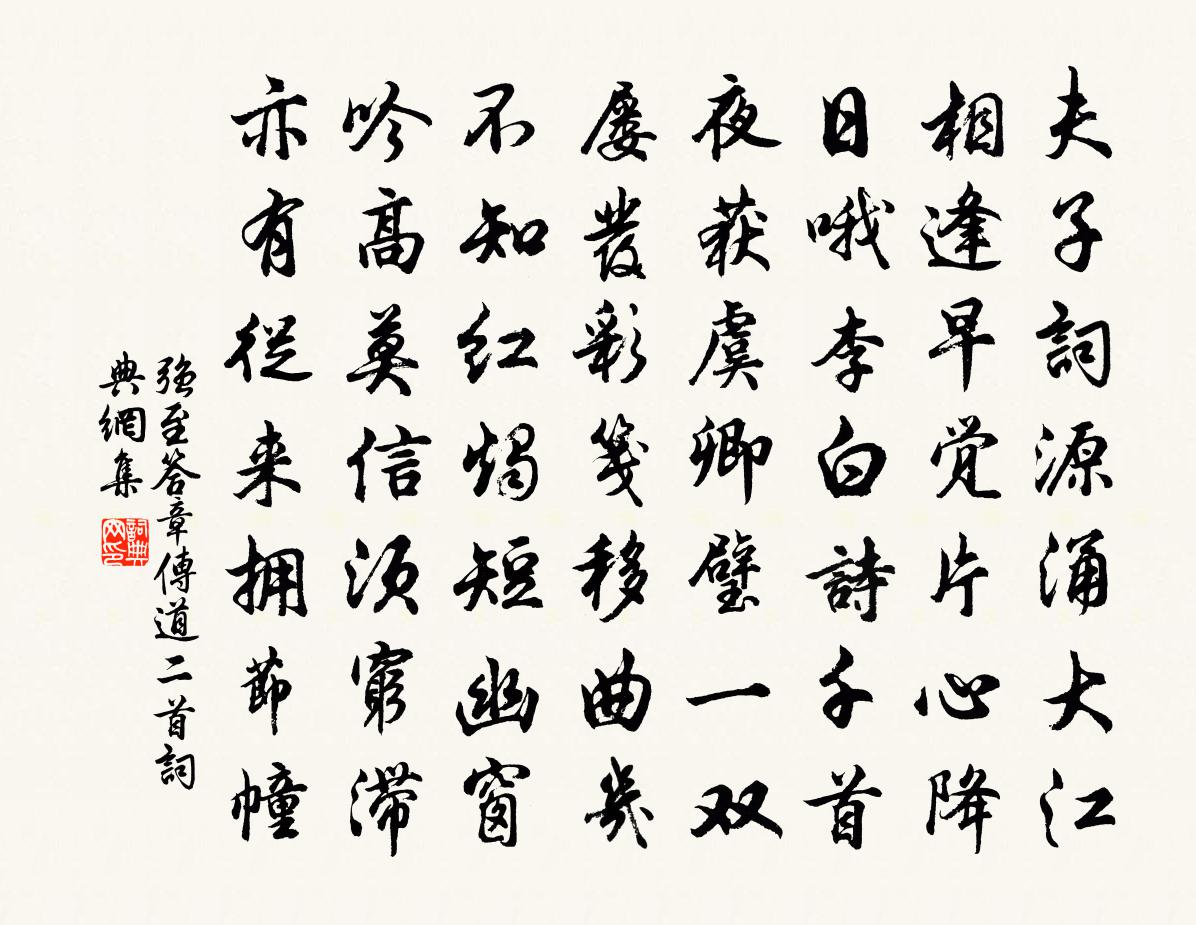 夫子詞源涌大江
相逢早觉片心降
日哦李白詩千首
夜获虞卿璧一双
屡發彩箋移曲幾
不知红燭短幽窗
吟高莫信须窮滞
亦有從来拥節幢
强至答章傳道二首詞
典網集
詞典
网印